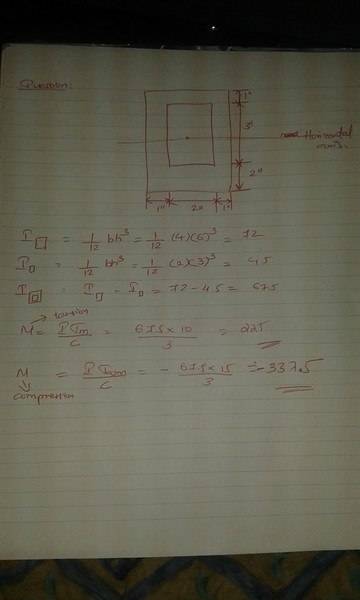 Question:
1"
3"
Horizontal axis.
2"
1" 2" 1"
I□ = 1/12 bh³ = 1/12 (4)(6)³ = 72
I□ = 1/12 bh³ = 1/12 (2)(3)³ = 4.5
I = I□ - I□ = 72 - 4.5 = 67.5
tension
M = I σm / C = 67.5 x 10 / 3 = 225
M = I σm / C = - 67.5 x 15 / 3 = -337.5
compression